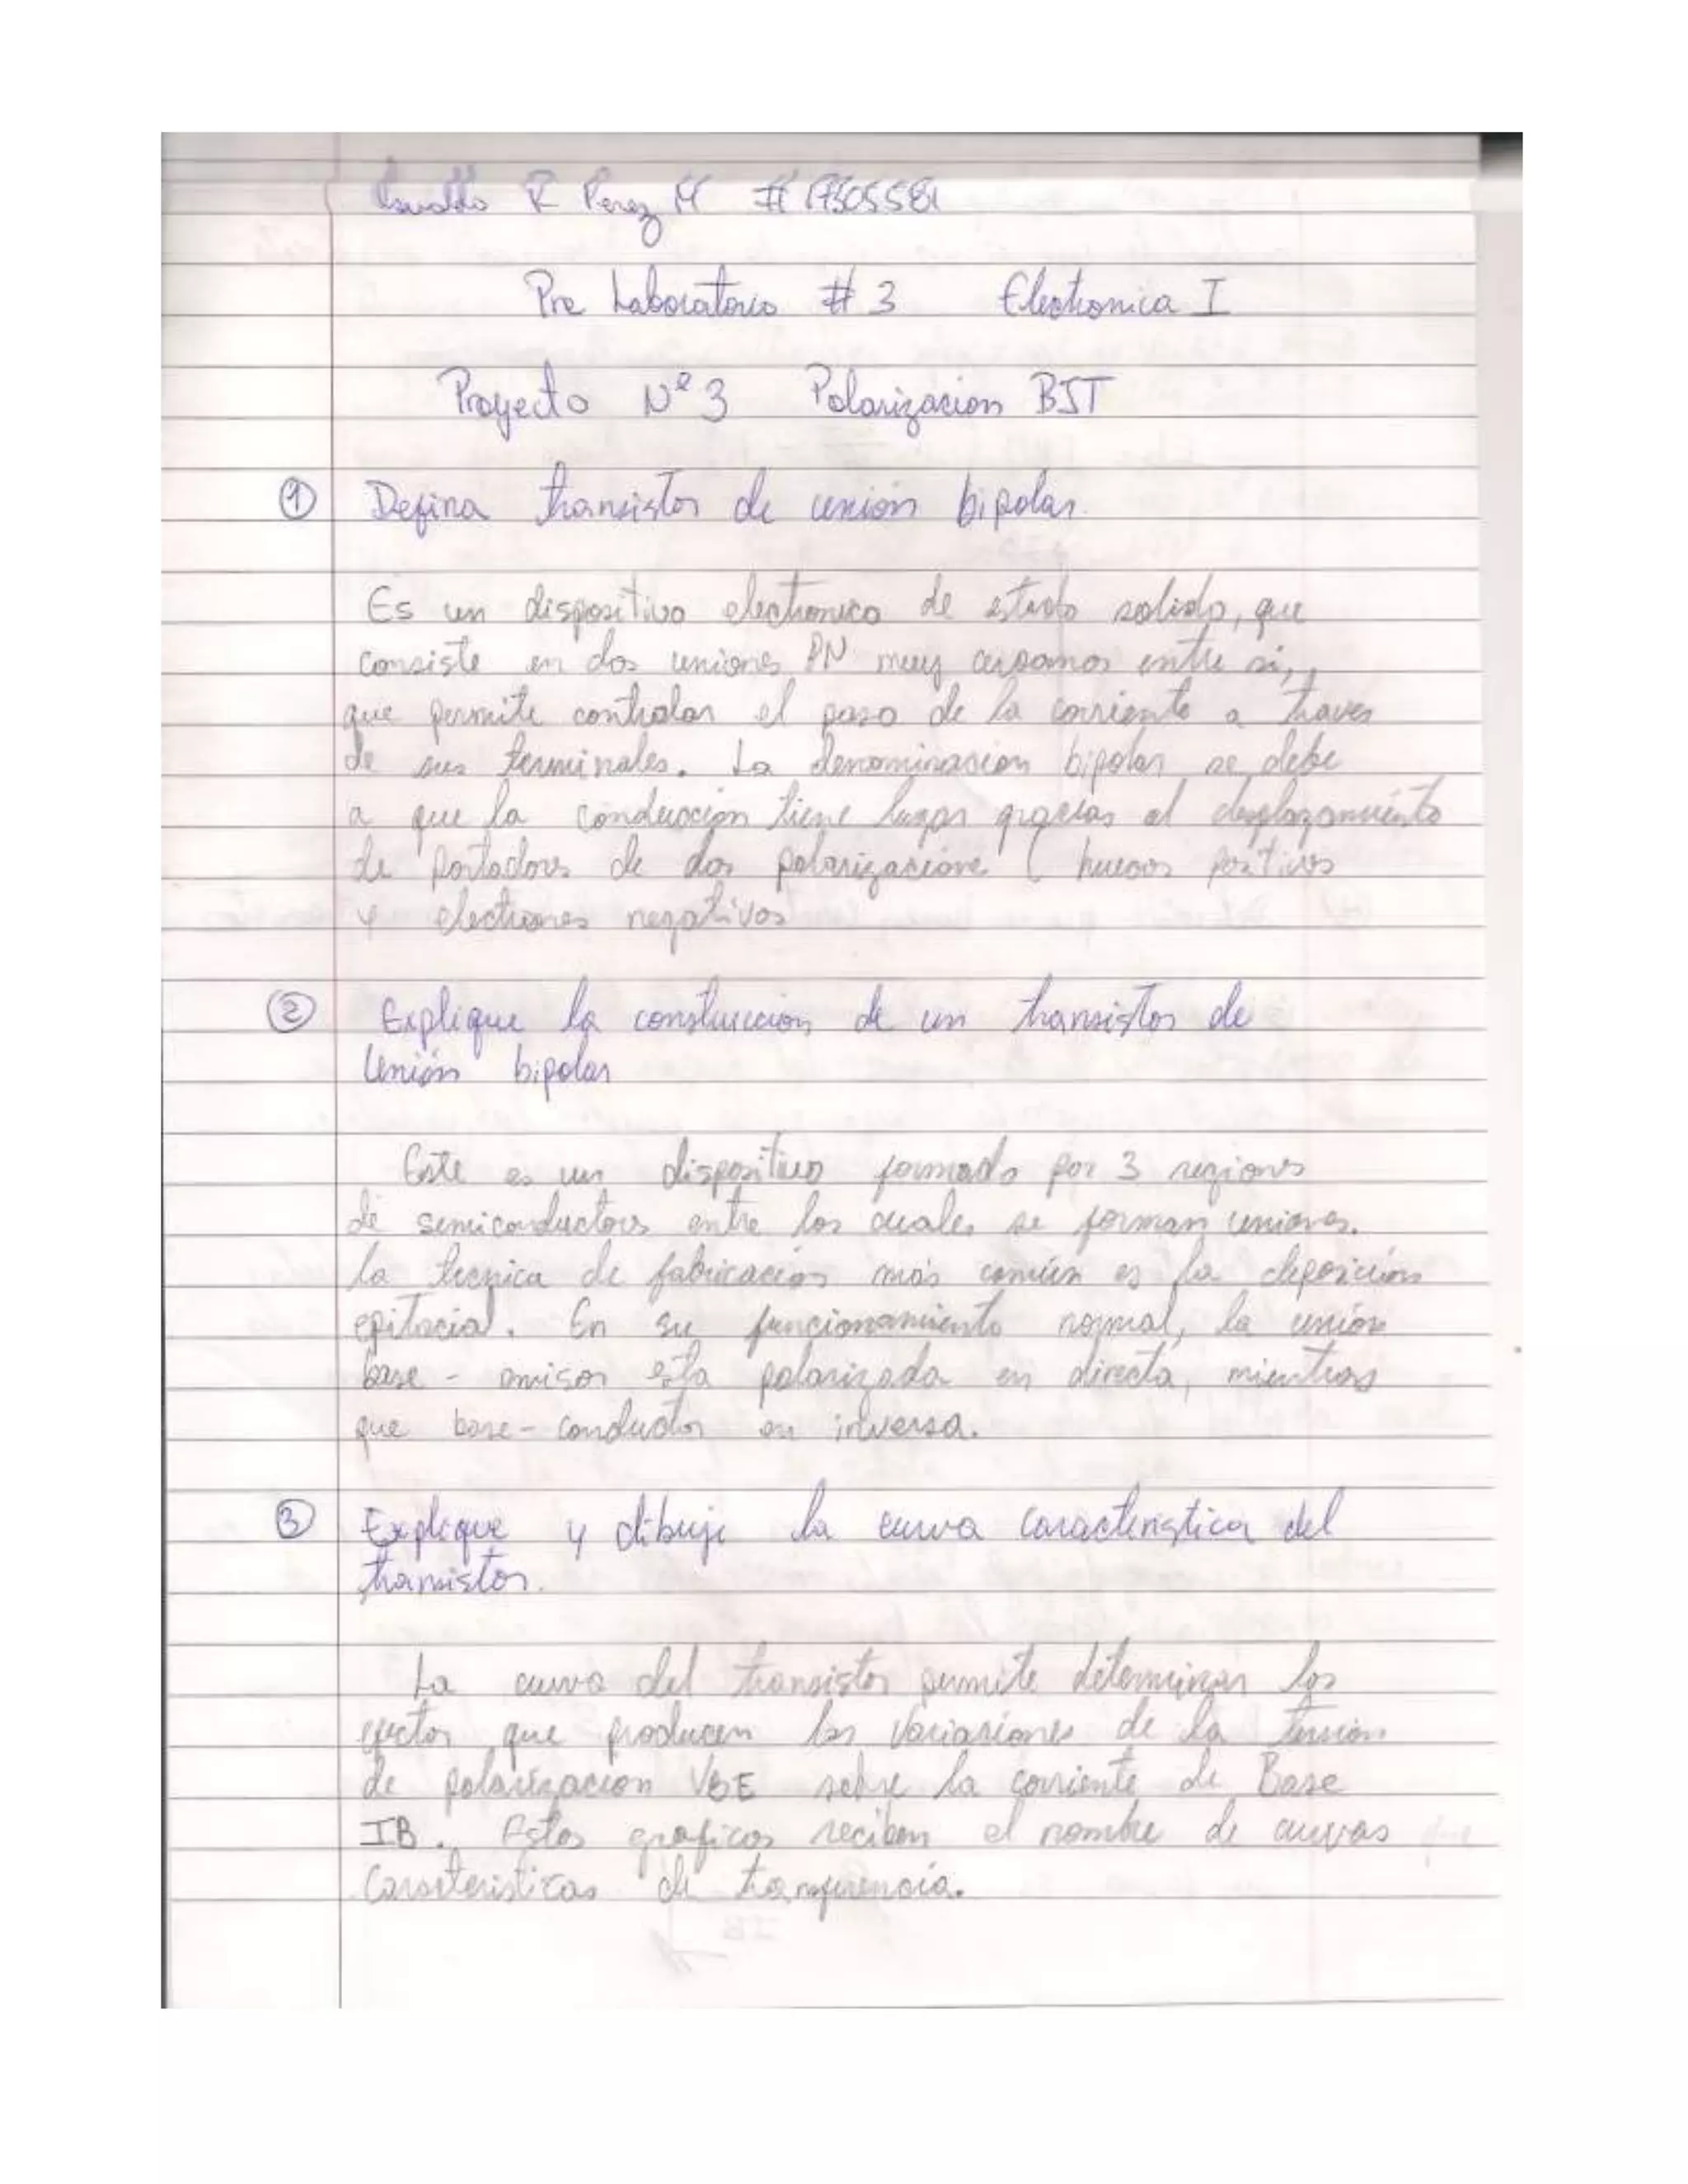 Osvaldo R Perez M # 17305581
Pre Laboratorio # 3 Electronica I
Proyecto Nº 3 Polarizacion BJT
① Defina transistor de unión bipolar.
Es un dispositivo electronico de estado solido, que
consiste en dos uniones PN muy cercanos entre si,
que permite controlar el paso de la corriente a traves
de sus terminales. La denominacion bipolar se debe
a que la conduccion tiene lugar gracias al desplazamiento
de portadores de dos polarizacione ( huecos positivos
y electrones negativos
② Explique la construccion de un transistor de
Unión bipolar
Este es un dispositivo formado por 3 regiones
de semiconductores entre los cuales se forman uniones.
La tecnica de fabricacion más común es la deposición
epitacial. En su funcionamiento normal, la unión
base - emisor esta polarizada en directa, mientras
que base - conductor en inversa.
③ Explique y dibuje la curva caracteristica del
transistor.
La curva del transistor permite determinar los
efectos que producen las variaciones de la tension
de polarizacion VBE sobre la corriente de Base
IB. Estos graficos reciben el nombre de curvas
Caracteristicas de transferencia.